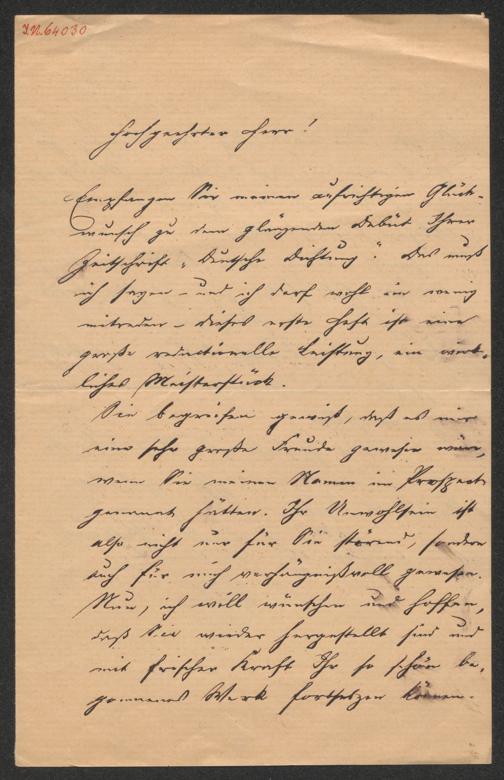 I.N. 64030
Hochgeehrter Herr!
Empfangen Sie meinen aufrichtigen Glück-
wunsch zu dem glänzenden Debüt Ihrer
Zeitschrift „Deutsche Dichtung“. Das muß
ich sagen – und ich darf wohl ein wenig
mitreden – dieses erste Heft ist eine
große redactionelle Leistung, ein wirk-
liches Meisterstück.
Sie begreifen gewiß, daß es mir
eine sehr große Freude gewesen wäre,
wenn Sie meinen Namen im Prospect
genannt hätten. Ihr Unwohlsein ist
also nicht nur für Sie störend, sondern
auch für mich verhängnißvoll gewesen.
Nun, ich will wünschen und hoffen,
daß Sie wieder hergestellt sind und
mit frischer Kraft Ihr so schön be-
gonnenes Werk fortsetzen können.